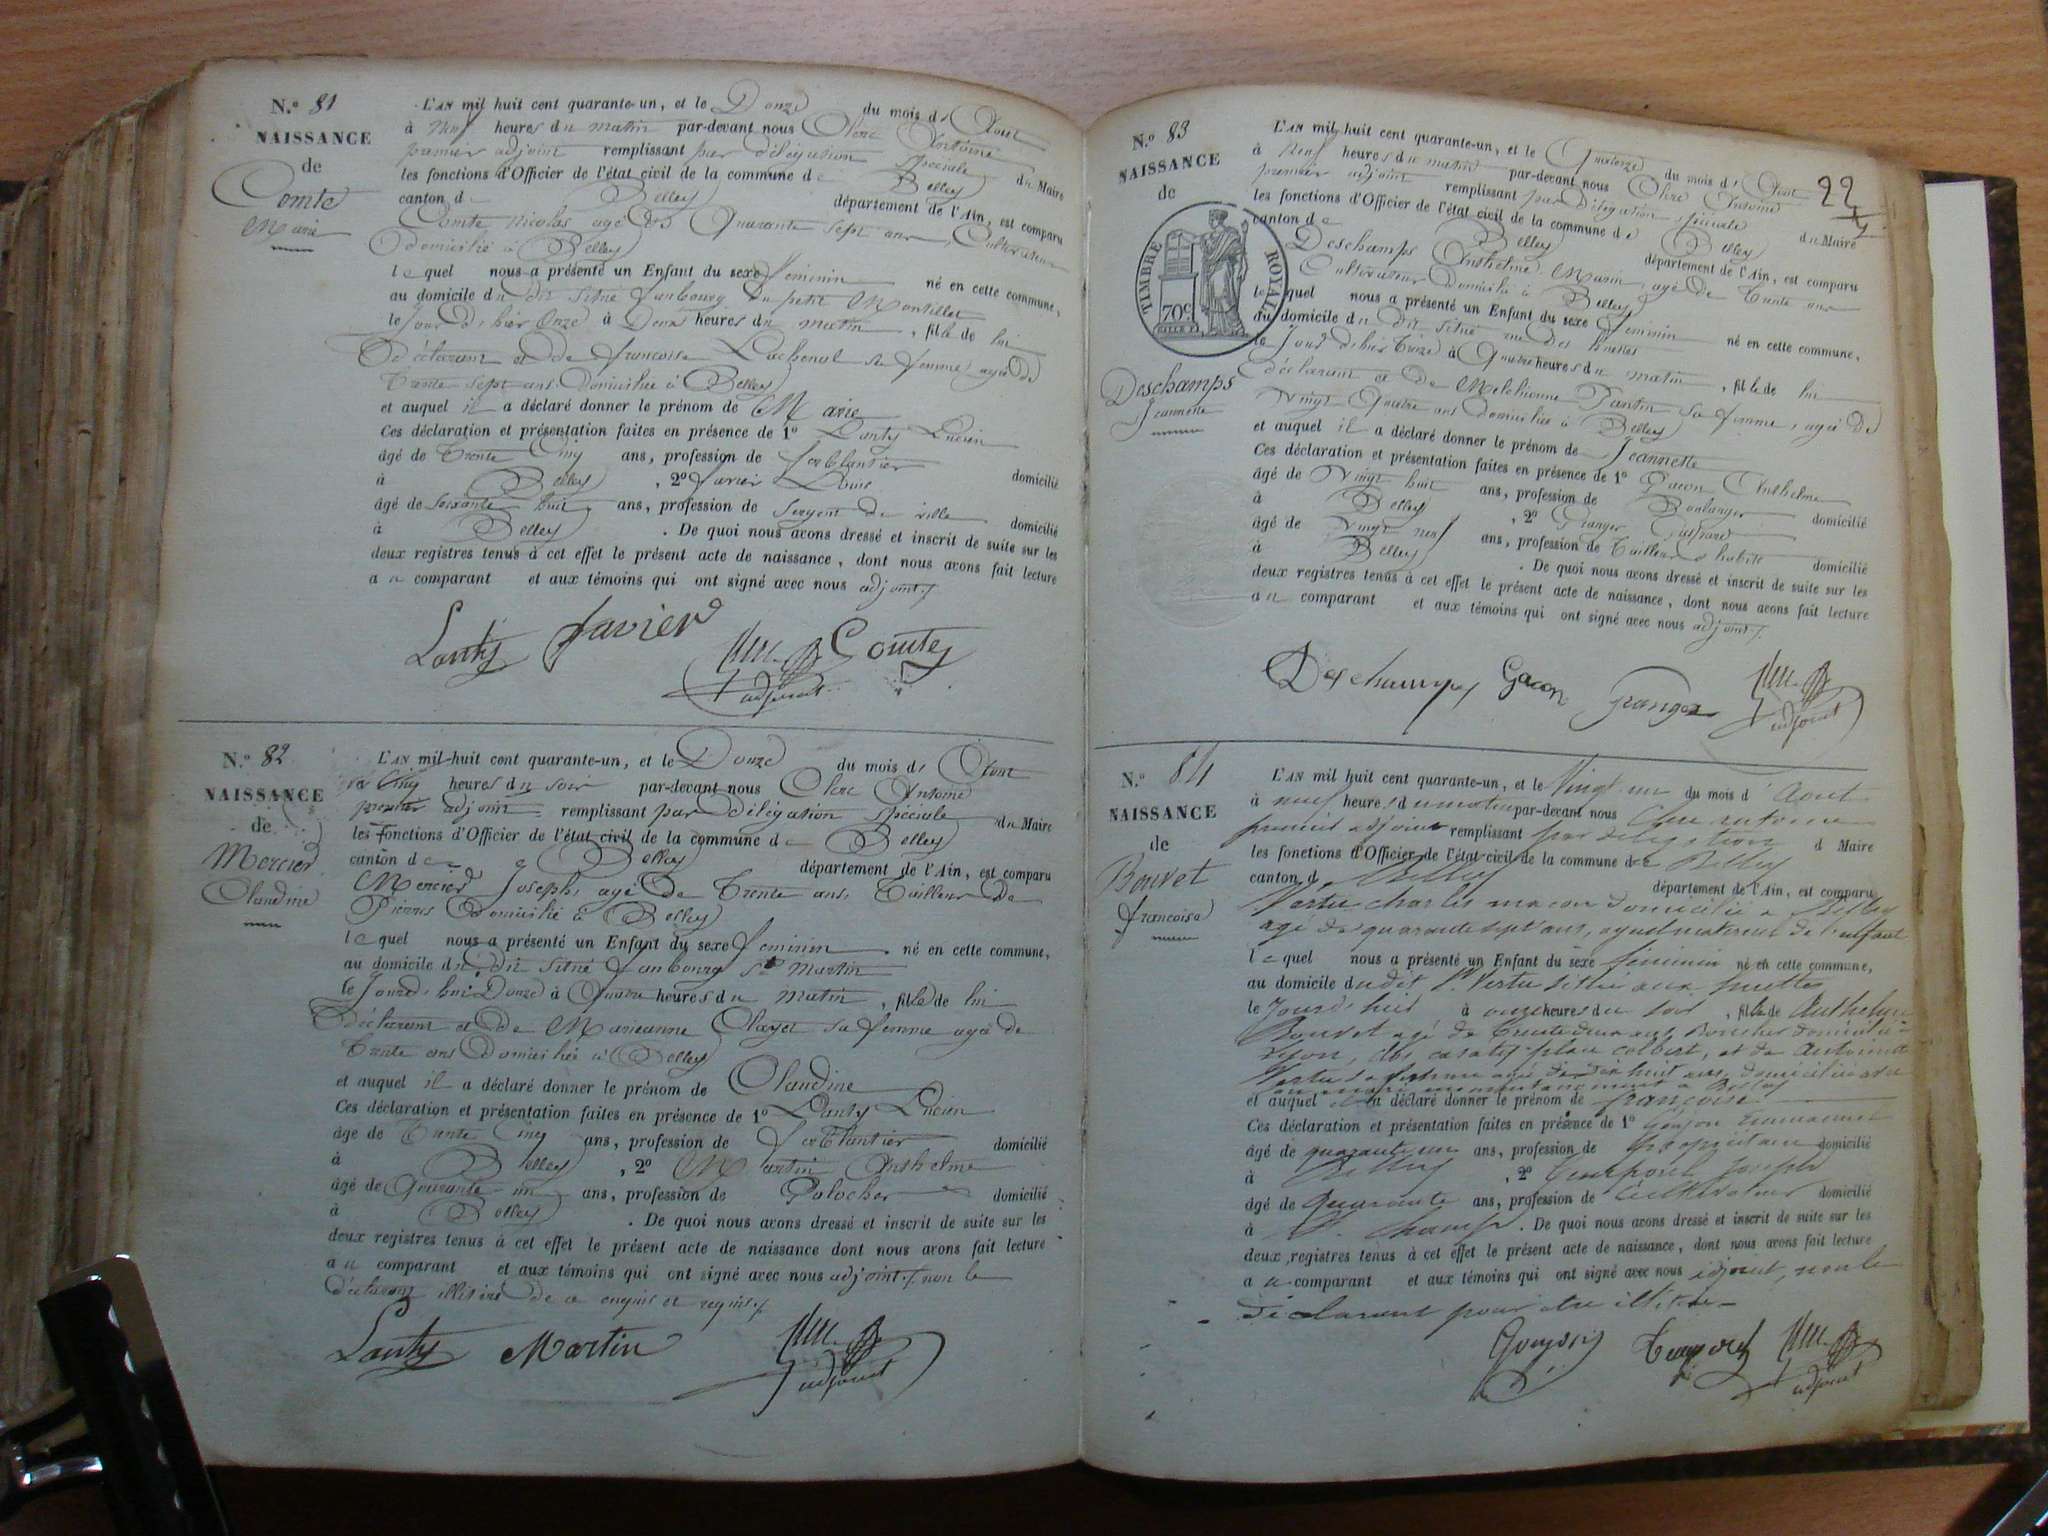 N.º 81
NAISSANCE
de
Comte
Marie
L'AN mil huit cent quarante-un, et le Douze du mois d'Aout
à neuf heures du matin par-devant nous Clerc Antoine
premier adjoint remplissant par délégation spéciale du Maire
les fonctions d'Officier de l'état civil de la commune de Belley
canton de Belley département de l'Ain, est comparu
Comte Nicolas agé de Quarante sept ans, Cultivateur
domicilié à Belley
lequel nous a présenté un Enfant du sexe feminin né en cette commune,
au domicile du dit situé faubourg du petit
le Jour d'hier Onze à Deux heures du matin, fille de lui
Déclarant et de francoise sa femme agée de
trente sept ans Domiciliée à Belley
et auquel il a déclaré donner le prénom de Marie
Ces déclaration et présentation faites en présence de 1º Lanty Lucien
âgé de trente Cinq ans, profession de ferblantier domicilié
à Belley, 2º Javier Louis
âgé de soixante huit ans, profession de sergent de ville domicilié
à Belley. De quoi nous avons dressé et inscrit de suite sur les
deux registres tenus à cet effet le présent acte de naissance, dont nous avons fait lecture
au comparant et aux témoins qui ont signé avec nous adjoint
Lanty Javier Comte
adjoint
N.º 82
NAISSANCE
de
Mercier
Claudine
L'AN mil-huit cent quarante-un, et le Douze du mois d'Aout
à Cinq heures du soir par-devant nous Clerc Antoine
premier adjoint remplissant par délégation spéciale du Maire
les fonctions d'Officier de l'état civil de la commune de Belley
canton de Belley département de l'Ain, est comparu
Mercier Joseph, agé de trente ans, tailleur de
Pierres Domicilié à Belley
lequel nous a présenté un Enfant du sexe feminin né en cette commune,
au domicile du dit situé faubourg St Martin
le Jourd'hui Douze à Quatre heures du matin, fille de lui
Déclarant et de Marieanne Clayet sa femme agée de
trente ans Domiciliée à Belley
et auquel il a déclaré donner le prénom de Claudine
Ces déclaration et présentation faites en présence de 1º Lanty Lucien
âgé de trente Cinq ans, profession de ferblantier domicilié
à Belley, 2º Martin Anthelme
âgé de Quarante un ans, profession de Galocher domicilié
à Belley. De quoi nous avons dressé et inscrit de suite sur les
deux registres tenus à cet effet le présent acte de naissance dont nous avons fait lecture
au comparant et aux témoins qui ont signé avec nous adjoint, non le
Déclarant illitéré de ce enquis et requis
Lanty Martin
adjoint
22
N.º 83
NAISSANCE
de
TIMBRE ROYAL
70c
Deschamps
Jeannette
L'AN mil huit cent quarante-un, et le Quatorze du mois d'Aout
à neuf heures du matin par-devant nous Clerc Antoine
premier adjoint remplissant par délégation spéciale du Maire
les fonctions d'Officier de l'état civil de la commune de Belley
canton de Belley département de l'Ain, est comparu
Deschamps Anthelme Marin, agé de trente ans
Cultivateur domicilié à Belley
lequel nous a présenté un Enfant du sexe feminin né en cette commune,
au domicile du dit situé rue des
le Jour d'hier treize à Quatre heures du matin, fille de lui
déclarant et de Melchionne Pantin sa femme, agée de
vingt Quatre ans domiciliée à Belley
et auquel il a déclaré donner le prénom de Jeannette
Ces déclaration et présentation faites en présence de 1º Gacon Anthelme
âgé de Vingt huit ans, profession de Boulanger domicilié
à Belley, 2º Granger Gaspard
âgé de Vingt neuf ans, profession de tailleur d'habits domicilié
à Belley. De quoi nous avons dressé et inscrit de suite sur les
deux registres tenus à cet effet le présent acte de naissance, dont nous avons fait lecture
au comparant et aux témoins qui ont signé avec nous adjoint
Deschamps Gacon Granger
adjoint
N.º 84
NAISSANCE
de
Bouvet
francoise
L'AN mil huit cent quarante-un, et le Vingt un du mois d'Aout
à neuf heures du matin par-devant nous Clerc antoine
premier adjoint remplissant par délégation d Maire
les fonctions d'Officier de l'état civil de la commune de Belley
canton d Belley département de l'Ain, est comparu
Vertu charles macon domicilié a Belley
agé de quarante sept ans, ayeul maternel de l'enfant
lequel nous a présenté un Enfant du sexe féminin né en cette commune,
au domicile dudit Sr Vertu située aux
le Jourd'huit à onze heures du soir, fille de Anthelme
Bouvet agé de trente deux ans, domicilié à
Lyon, place colbert, et de Antoinette
Vertu sa femme agé de dix huit ans, domiciliée avec
son mari momentanément a Belley
et auquel il a déclaré donner le prénom de francoise
Ces déclaration et présentation faites en présence de 1º Goujon Emmanuel
âgé de quarante un ans, profession de propriétaire domicilié
à Belley, 2º Joseph
âgé de Quarante ans, profession de Cultivateur domicilié
à St. Champ. De quoi nous avons dressé et inscrit de suite sur les
deux registres tenus à cet effet le présent acte de naissance, dont nous avons fait lecture
au comparant et aux témoins qui ont signé avec nous adjoint, non le
déclarant pour etre illitéré
Goujon
adjoint